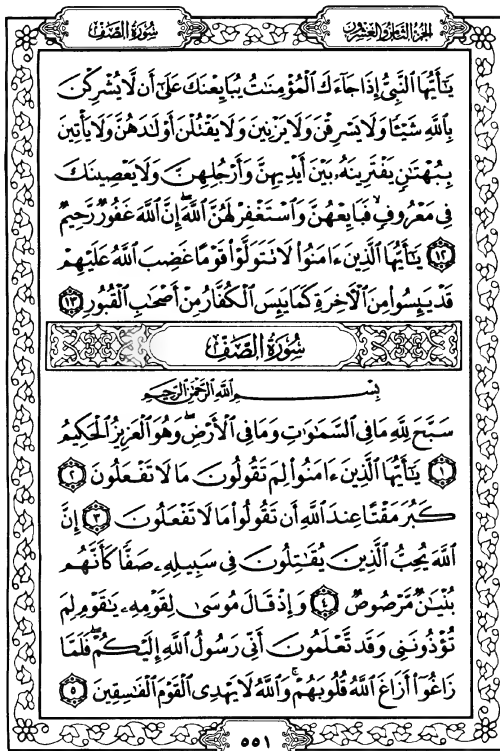 سُورَةُ الصَّفِّ
الجُزءُ الثَّامِنُ وَالعِشرُونَ
يَٰٓأَيُّهَا ٱلنَّبِىُّ إِذَا جَآءَكَ ٱلْمُؤْمِنَٰتُ يُبَايِعْنَكَ عَلَىٰٓ أَن لَّا يُشْرِكْنَ
بِٱللَّهِ شَيْـًٔا وَلَا يَسْرِقْنَ وَلَا يَزْنِينَ وَلَا يَقْتُلْنَ أَوْلَٰدَهُنَّ وَلَا يَأْتِينَ
بِبُهْتَٰنٍ يَفْتَرِينَهُۥ بَيْنَ أَيْدِيهِنَّ وَأَرْجُلِهِنَّ وَلَا يَعْصِينَكَ
فِى مَعْرُوفٍ ۙ فَبَايِعْهُنَّ وَٱسْتَغْفِرْ لَهُنَّ ٱللَّهَ ۖ إِنَّ ٱللَّهَ غَفُورٌ رَّحِيمٌ
١٢ يَٰٓأَيُّهَا ٱلَّذِينَ ءَامَنُوا۟ لَا تَتَوَلَّوْا۟ قَوْمًا غَضِبَ ٱللَّهُ عَلَيْهِمْ
قَدْ يَئِسُوا۟ مِنَ ٱلْءَاخِرَةِ كَمَا يَئِسَ ٱلْكُفَّارُ مِنْ أَصْحَٰبِ ٱلْقُبُورِ ١٣
سُورَةُ الصَّفِّ
بِسْمِ ٱللَّهِ ٱلرَّحْمَٰنِ ٱلرَّحِيمِ
سَبَّحَ لِلَّهِ مَا فِى ٱلسَّمَٰوَٰتِ وَمَا فِى ٱلْأَرْضِ ۖ وَهُوَ ٱلْعَزِيزُ ٱلْحَكِيمُ
١ يَٰٓأَيُّهَا ٱلَّذِينَ ءَامَنُوا۟ لِمَ تَقُولُونَ مَا لَا تَفْعَلُونَ ٢
كَبُرَ مَقْتًا عِندَ ٱللَّهِ أَن تَقُولُوا۟ مَا لَا تَفْعَلُونَ ٣ إِنَّ
ٱللَّهَ يُحِبُّ ٱلَّذِينَ يُقَٰتِلُونَ فِى سَبِيلِهِۦ صَفًّا كَأَنَّهُم
بُنْيَٰنٌ مَّرْصُوصٌ ٤ وَإِذْ قَالَ مُوسَىٰ لِقَوْمِهِۦ يَٰقَوْمِ لِمَ
تُؤْذُونَنِى وَقَد تَّعْلَمُونَ أَنِّى رَسُولُ ٱللَّهِ إِلَيْكُمْ ۖ فَلَمَّا
زَاغُوٓا۟ أَزَاغَ ٱللَّهُ قُلُوبَهُمْ ۚ وَٱللَّهُ لَا يَهْدِى ٱلْقَوْمَ ٱلْفَٰسِقِينَ ٥
٥٥١